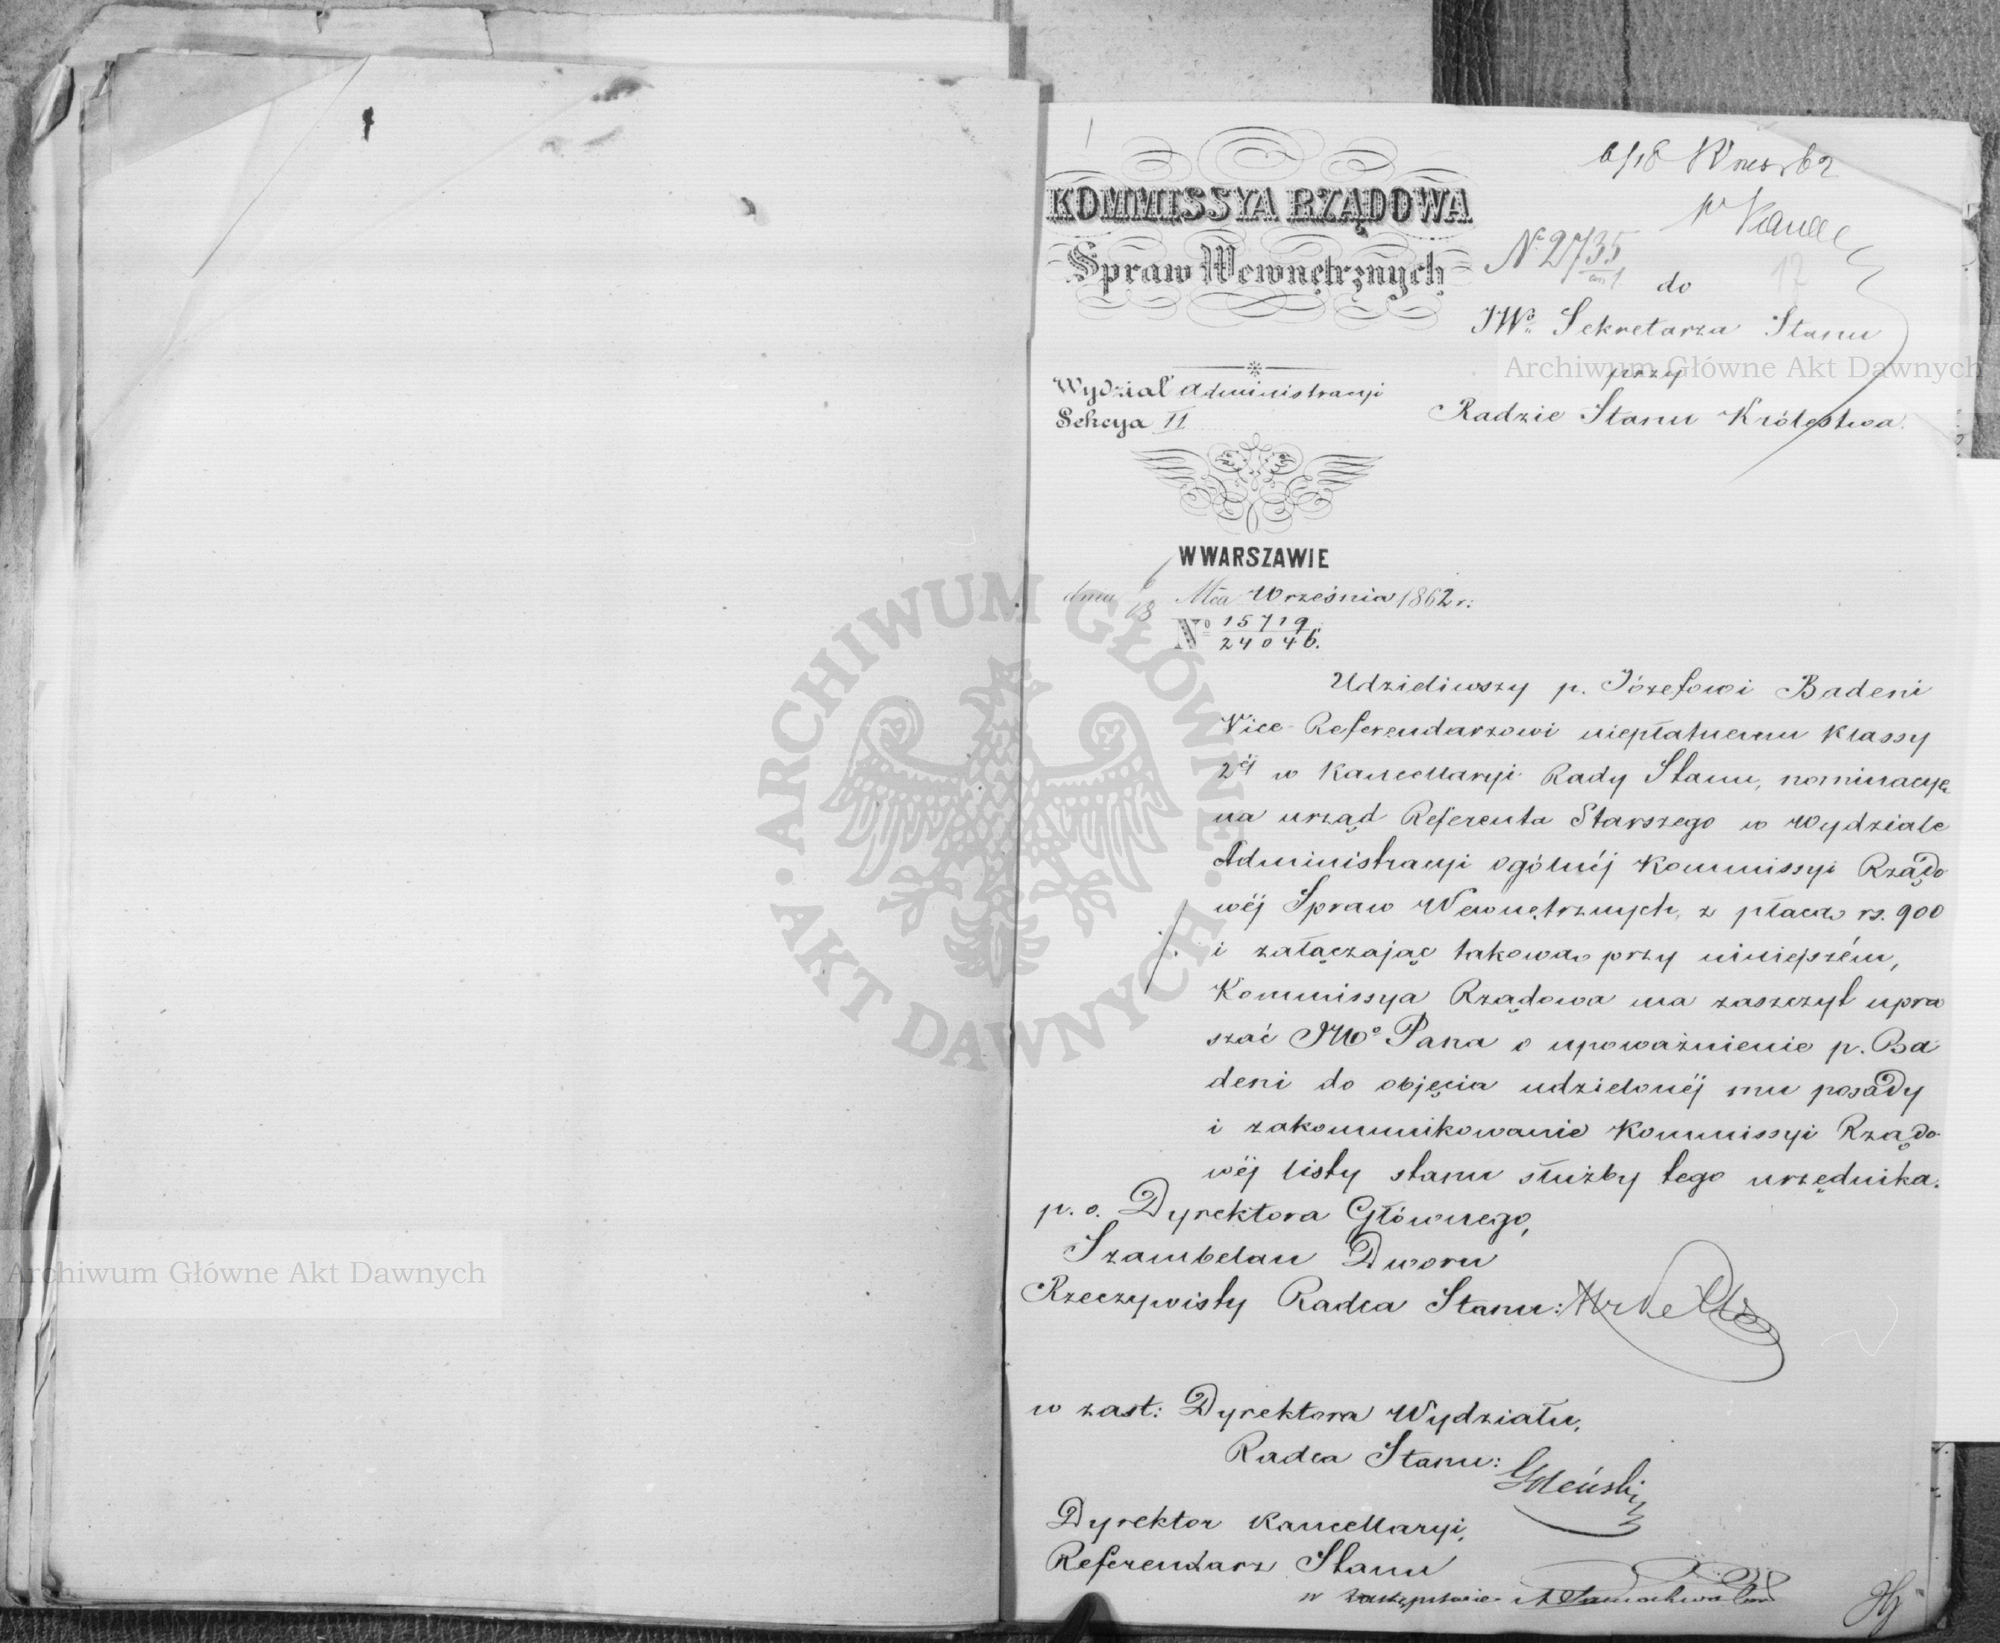 6/18 Wrzes. 62
KOMMISSYA RZĄDOWA
Spraw Wewnętrznych
N. 2735
do
12
JWo Sekretarza Stanu
przy
Radzie Stanu Królestwa.
Wydział Administracyi
Sekcya II
W WARSZAWIE
dnia 6/18 Mca Września 1862 r.
No 15719
24046.
Udzieliwszy p. Józefowi Badeni
Vice-Referendarzowi niepłatnemu klassy
2éj w Kancellaryi Rady Stanu, nominacyę
na urząd Referenta Starszego w Wydziale
Administracyi ogólnéj Kommissyi Rządo
wéj Spraw Wewnętrznych, z płacą rs. 900
i załączając takową przy niniejszém,
Kommissya Rządowa ma zaszczyt upra
szać JWo Pana o upoważnienie p. Ba
deni do objęcia udzielonéj mu posady
i zakommunikowanie Kommissyi Rządo
wéj listy stanu służby tego urzędnika.
p. o. Dyrektora Głównego,
Szambelan Dworu
Rzeczywisty Radca Stanu:
w zast: Dyrektora Wydziału,
Radca Stanu:
Dyrektor Kancellaryi,
Referendarz Stanu
w zastępstwie
Archiwum Główne Akt Dawnych
Archiwum Główne Akt Dawnych
· ARCHIWUM GŁÓWNE · AKT DAWNYCH